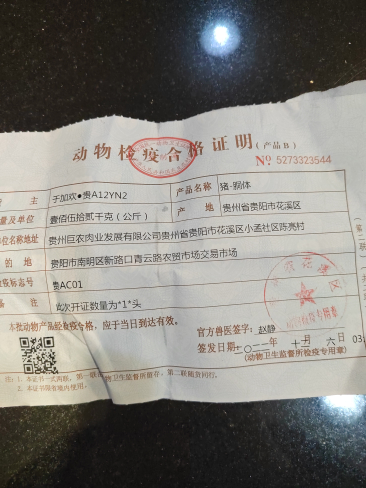 动物检疫合格证明(产品B)
№ 5273323544
货 于加欢●贵A12YN2 产品名称 猪-胴体
量及单位 壹佰伍拾贰千克(公斤) 产 地 贵州省贵阳市花溪区
单位名称地址 贵州巨农肉业发展有限公司贵州省贵阳市花溪区小孟社区陈亮村
的 地 贵阳市南明区新路口青云路农贸市场交易市场
疫标志号 贵AC01
备 注 此次开证数量为*1*头
本批动物产品经检疫合格，应于当日到达有效。
官方兽医签字：赵静
签发日期：二〇二一年 十 月 六 日
(动物卫生监督所检疫专用章)
注：1. 本证书一式两联，第一联 动物卫生监督所留存，第二联随货同行。
2. 本证书限省境内使用。